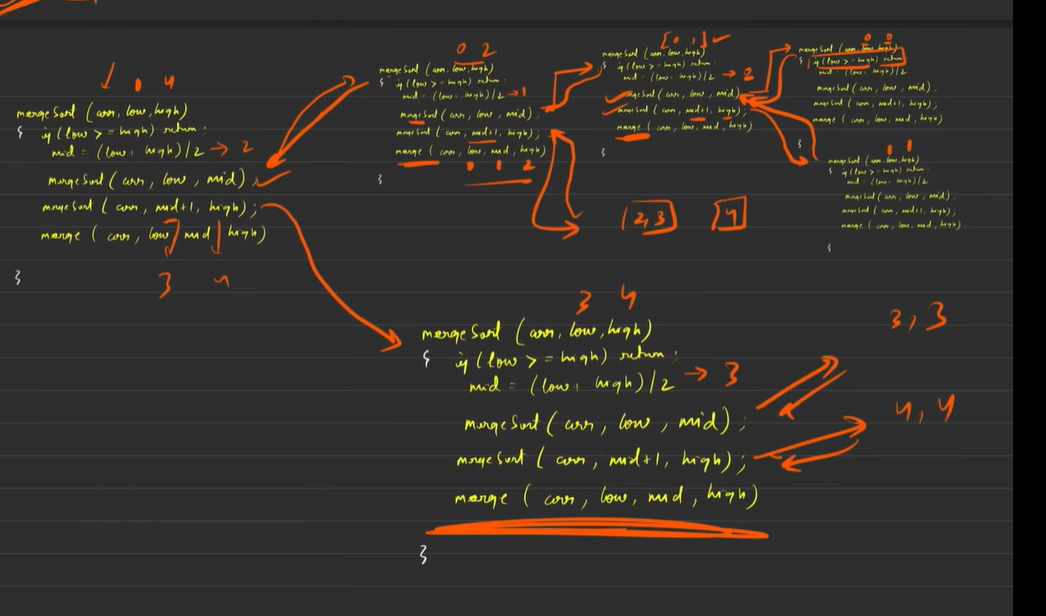 0 4
mergeSort (arr, low, high)
{ if (low >= high) return;
mid = (low + high)/2 → 2
mergeSort (arr, low, mid);
mergeSort (arr, mid+1, high);
merge (arr, low, mid, high)
3 4
}
0 2
mergeSort (arr, low, high)
{ if (low >= high) return;
mid = (low + high)/2 → 1
mergeSort (arr, low, mid);
mergeSort (arr, mid+1, high);
merge (arr, low, mid, high)
0 1 2
}
[0 1]
mergeSort (arr, low, high)
{ if (low >= high) return;
mid = (low + high)/2 → 0
mergeSort (arr, low, mid)
mergeSort (arr, mid+1, high);
merge (arr, low, mid, high)
}
0 0
mergeSort (arr, low, high)
{ if (low >= high) return
mid = (low + high)/2
mergeSort (arr, low, mid);
mergeSort (arr, mid+1, high);
merge (arr, low, mid, high)
}
1 1
mergeSort (arr, low, high)
{ if (low >= high) return;
mid = (low + high)/2
mergeSort (arr, low, mid);
mergeSort (arr, mid+1, high);
merge (arr, low, mid, high)
}
2,3 4
3 4
mergeSort (arr, low, high)
{ if (low >= high) return;
mid = (low + high)/2 → 3
mergeSort (arr, low, mid);
mergeSort (arr, mid+1, high);
merge (arr, low, mid, high)
}
3, 3
4, 4